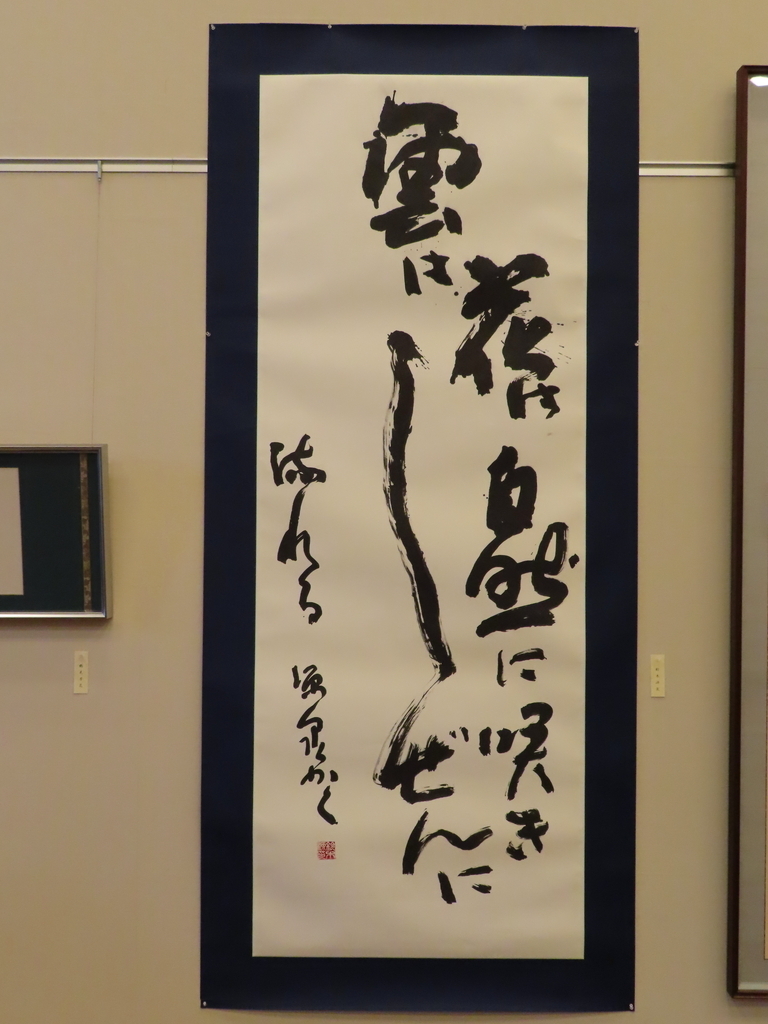 花は自然に咲き
雲はしぜんに
流れる
源泉かく